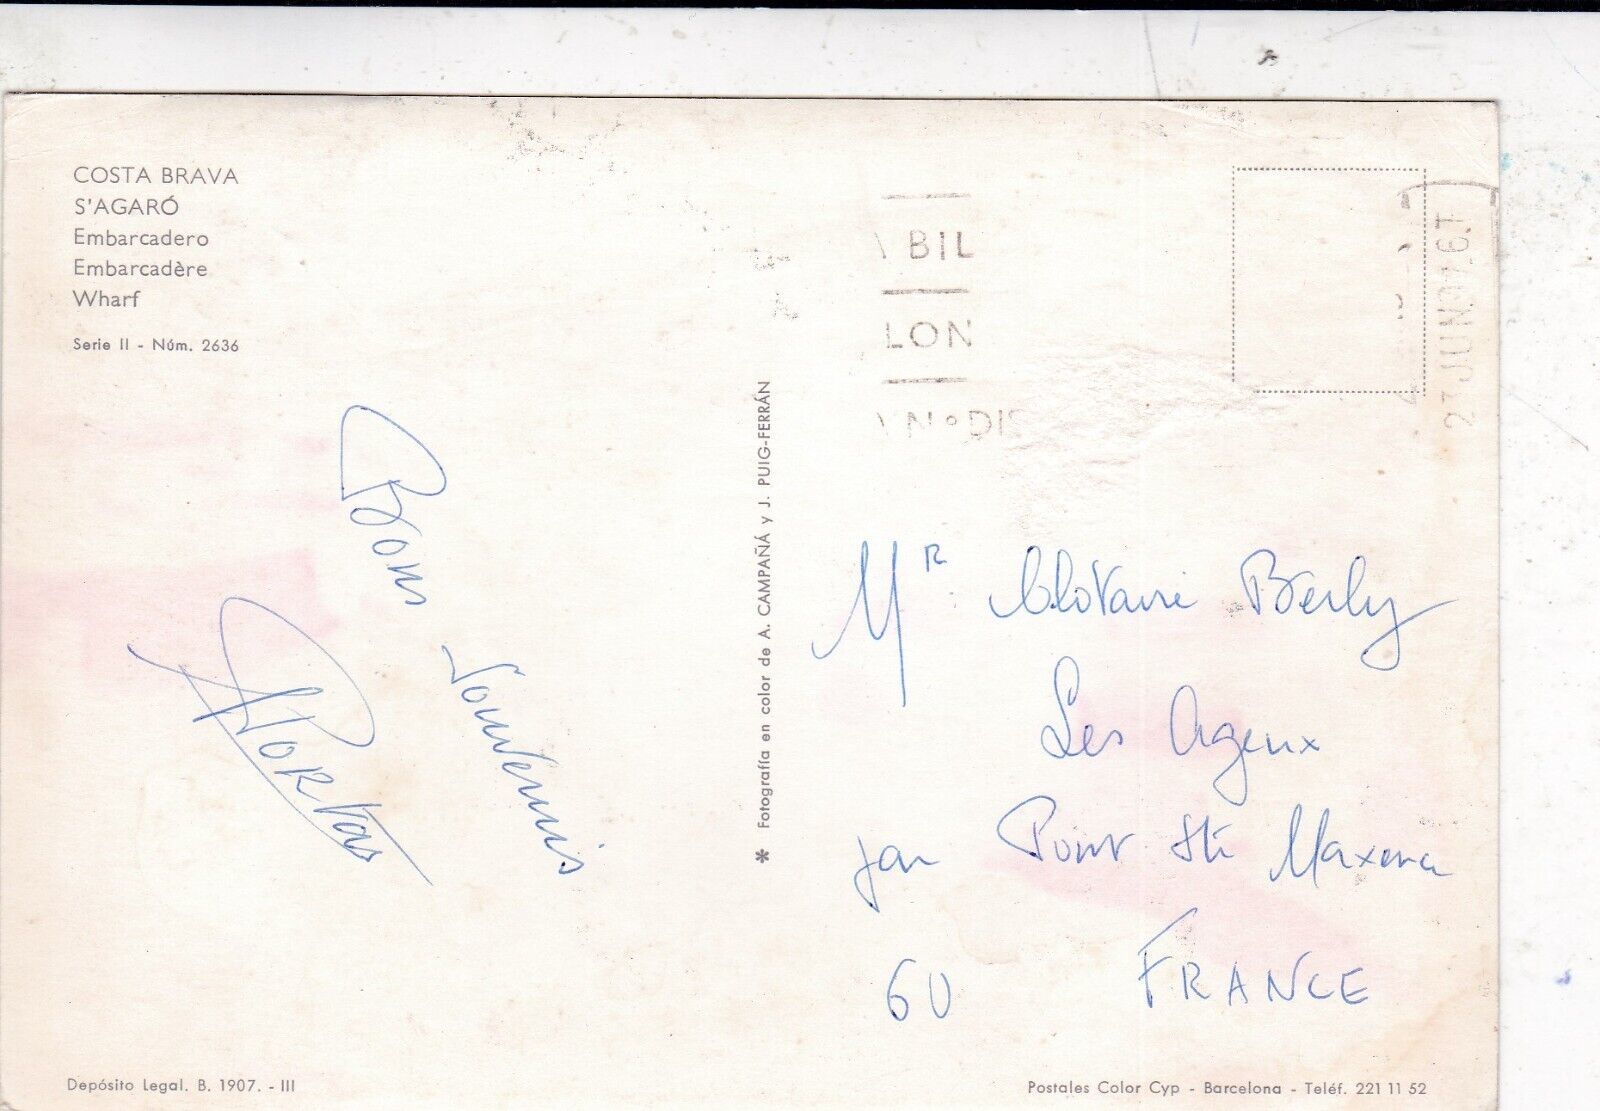 COSTA BRAVA
S'AGARÓ
Embarcadero
Embarcadère
Wharf
Serie II - Núm. 2636
BIL
LON
Nº DIS
23 JUN
Bons
Souvenirs
Portas
✻ Fotografía en color de A. CAMPAÑÁ y J. PUIG-FERRÁN
Mr Clotaire Berly
Les Ageux
par Pont Ste Maxence
60 FRANCE
Depósito Legal. B. 1907. - III
Postales Color Cyp - Barcelona - Teléf. 221 11 52